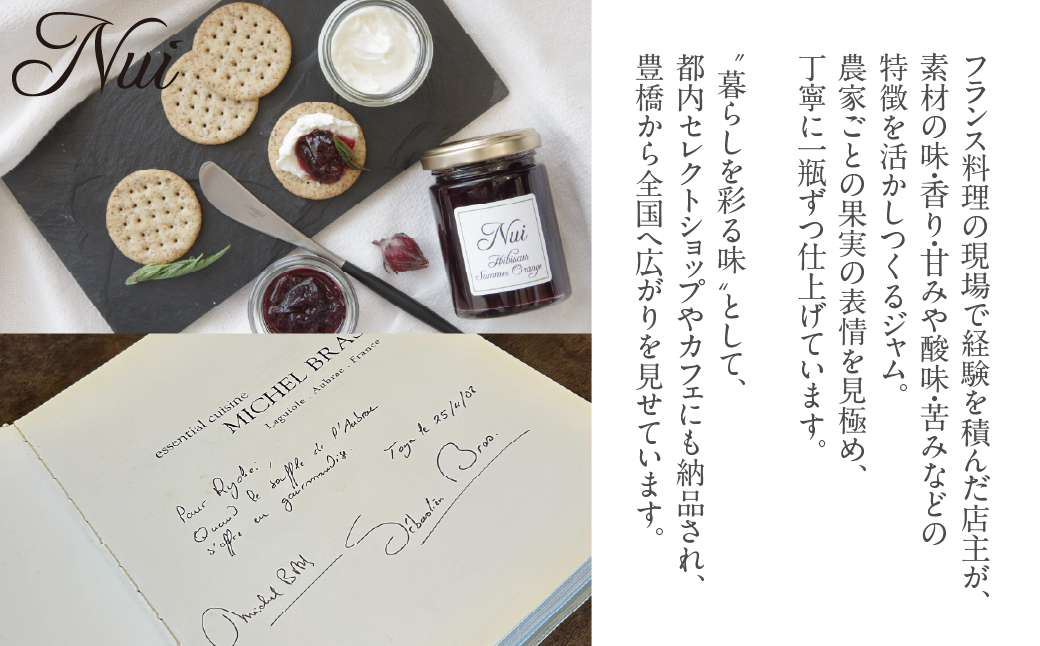 Nui
Nui
Hibiscus
Summer Orange
essential cuisine
MICHEL BRAS
Laguiole . Aubrac . France
Pour Ryohei
Quand le souffle de l'Aubrac
s'offre en gourmandise.
Toya le 25/4/08
Sébastien Bras
Michel BRAS
フランス料理の現場で経験を積んだ店主が、
素材の味・香り・甘みや酸味・苦みなどの
特徴を活かしつくるジャム。
農家ごとの果実の表情を見極め、
丁寧に一瓶ずつ仕上げています。
〝暮らしを彩る味〟として、
都内セレクトショップやカフェにも納品され、
豊橋から全国へ広がりを見せています。